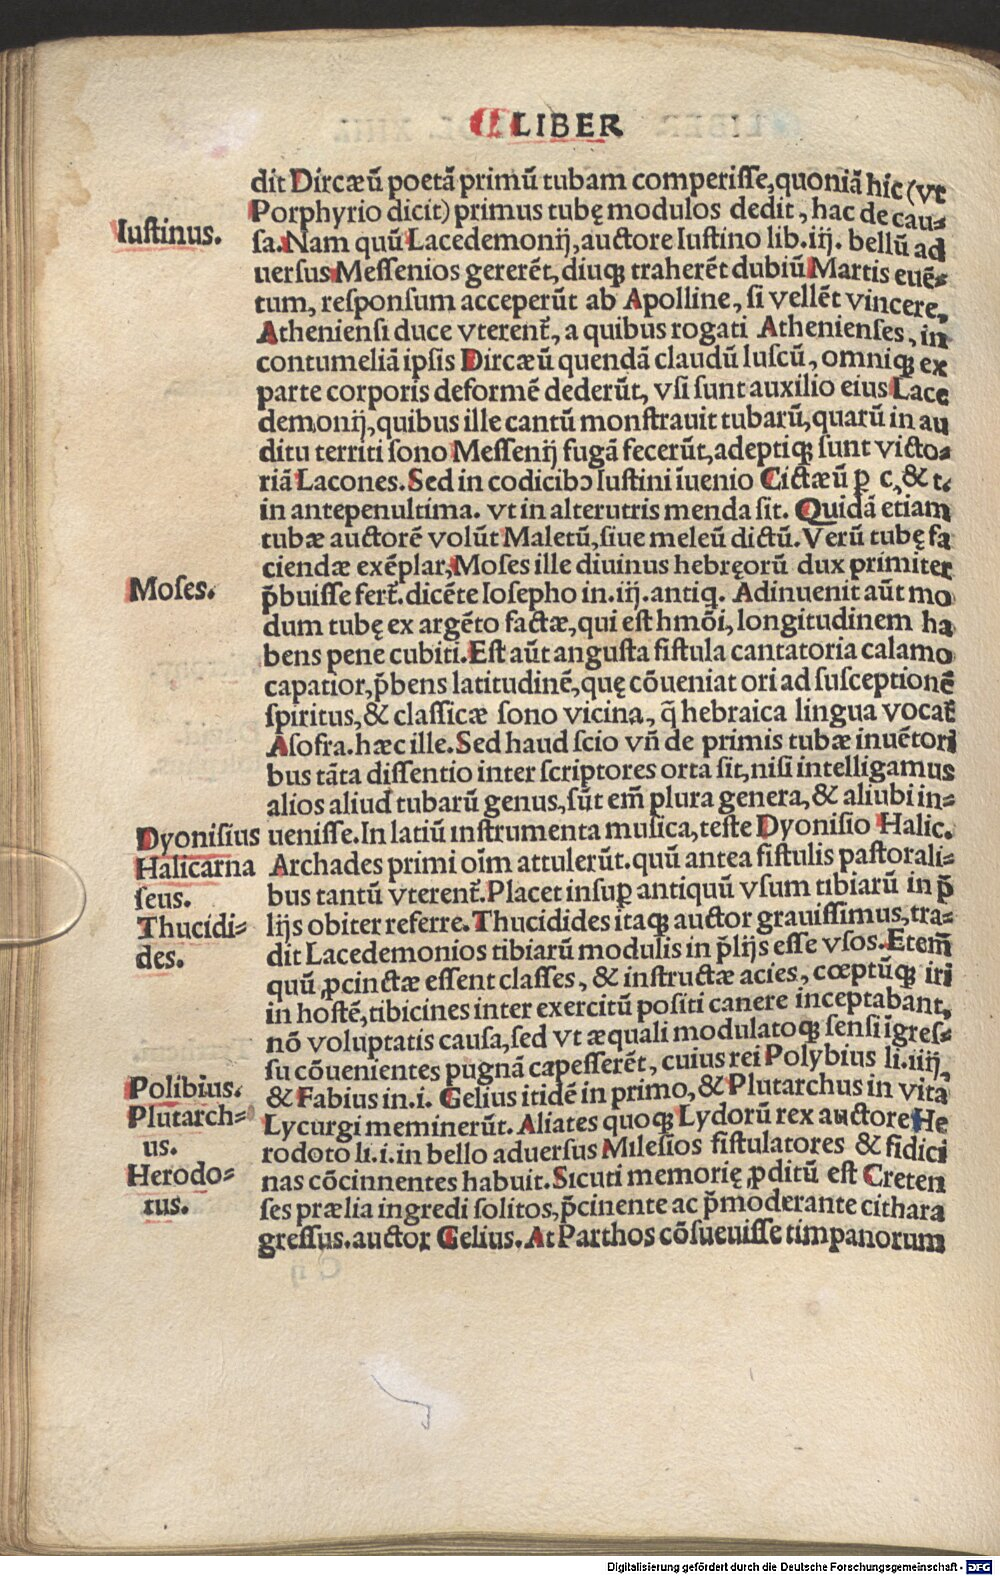 LIBER
dit Dircæū poetā primū tubam comperiſſe, quoniā hic (vt
Porphyrio dicit) primus tubę modulos dedit, hac de cau⸗
Iuſtinus.
ſa. Nam quū Lacedemonij, auctore Iuſtino lib. iij. bellū ad
uerſus Meſſenios gererēt, diuqꝫ traherēt dubiū Martis euē⸗
tum, reſponſum acceperūt ab Apolline, ſi vellēt vincere,
Athenienſi duce vterent̄, a quibus rogati Athenienſes, in
contumeliā ipſis Dircæū quendā claudū luſcū, omniqꝫ ex
parte corporis deformē dederūt, vſi ſunt auxilio eius Lace
demonij, quibus ille cantū monſtrauit tubarū, quarū in au
ditu territi ſono Meſſenij fugā fecerūt, adeptiqꝫ ſunt victo⸗
riā Lacones. Sed in codicibꝰ Iuſtini īuenio Cictæū ꝑ c, & t.
in antepenultima. vt in alterutris menda ſit. Quidā etiam
tubæ auctorē volūt Maletū, ſiue meleū dictū. Verū tubę fa
ciendæ exēplar, Moſes ille diuinus hebręorū dux primiter
Moſes.
p̄buiſſe fert̄. dicēte Ioſepho in. iij. antiq. Adinuenit aūt mo
dum tubę ex argēto factæ, qui eſt hmōi, longitudinem ha
bens pene cubiti. Eſt aūt anguſta fiſtula cantatoria calamo
capatior, p̄bens latitudinē, quę cōueniat ori ad ſuſceptionē
ſpiritus, & claſſicæ ſono vicina, q̄ hebraica lingua vocat̄
Aſofra. hæc ille. Sed haud ſcio vn̄ de primis tubæ inuētori
bus tāta diſſentio inter ſcriptores orta ſit, niſi intelligamus
alios aliud tubarū genus, ſūt em̄ plura genera, & aliubi in⸗
Dyoniſius
ueniſſe. In latiū inſtrumenta muſica, teſte Dyoniſio Halic.
Halicarna
Archades primi oīm attulerūt. quū antea fiſtulis paſtorali⸗
ſeus.
bus tantū vterent̄. Placet inſuꝑ antiquū vſum tibiarū in p̄
Thucidi⸗
lijs obiter referre. Thucidides itaqꝫ auctor grauiſſimus, tra⸗
des.
dit Lacedemonios tibiarū modulis in p̄lijs eſſe vſos. Etem̄
quū ꝓcinctæ eſſent claſſes, & inſtructæ acies, cœptūqꝫ iri
in hoſtē, tibicines inter exercitū poſiti canere inceptabant,
nō voluptatis cauſa, ſed vt æquali modulatoqꝫ ſenſi īgreſ⸗
ſu cōuenientes pugnā capeſſerēt, cuius rei Polybius li. iiij,
Polibius.
& Fabius in. i. Gelius itidē in primo, & Plutarchus in vita
Plutarch⸗
Lycurgi meminerūt. Aliates quoqꝫ Lydorū rex auctore He
us.
rodoto li. i. in bello aduerſus Mileſios fiſtulatores & fidici
Herodo⸗
nas cōcinnentes habuit. Sicuti memorię ꝓditū eſt Creten
tus.
ſes prælia ingredi ſolitos, p̄cinente ac p̄moderante cithara
greſſus. auctor Gelius. At Parthos cōſueuiſſe timpanorum
Digitalisierung gefördert durch die Deutsche Forschungsgemeinschaft - DFG